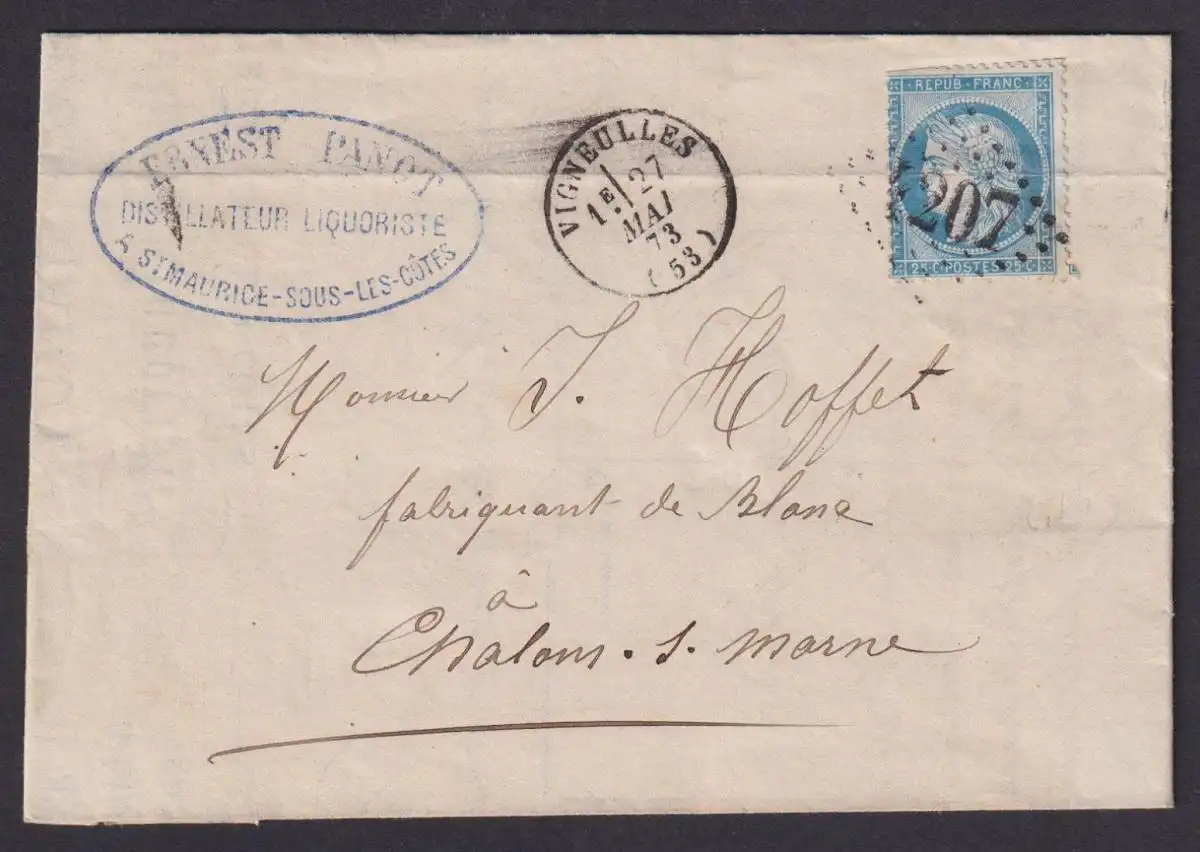 ERNEST PANOT
DISTILLATEUR LIQUORISTE
A ST MAURICE-SOUS-LES-CÔTES
VIGNEULLES
1E
27
MAI
73
(53)
REPUB·FRANC·
207
25 C·POSTES·25 C·
Monsieur J. Hoffet
fabriquant de Blanc
à
Chalons. s. Marne